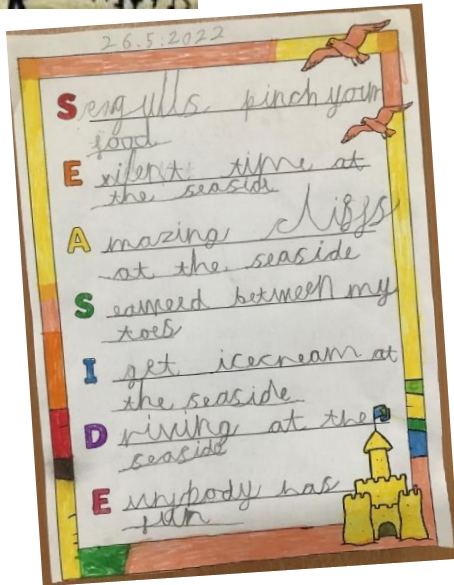 26.5.2022
Seagulls pinch your
food
Exilent time at
the seaside
Amazing cliffs
at the seaside
Seaweed between my
toes
I get icecream at
the seaside
Driving at the
seaside
Evrybody has
fun